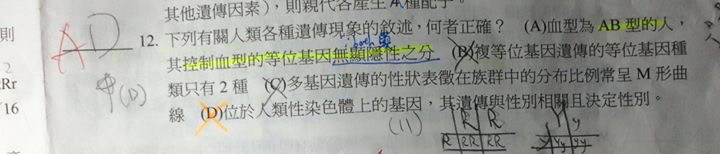 其他遺傳因素），則親代各產生 4 種配子。
則
AD 12. 下列有關人類各種遺傳現象的敘述，何者正確？ (A)血型為 AB 型的人，
其控制血型的等位基因無顯隱性之分 (B)複等位基因遺傳的等位基因種
類只有 2 種 (C)多基因遺傳的性狀表徵在族群中的分布比例常呈 M 形曲
線 (D)位於人類性染色體上的基因，其遺傳與性別相關且決定性別。
2
Rr
16
(D)
(11)
R R
R RR RR
Y y
Yy yy